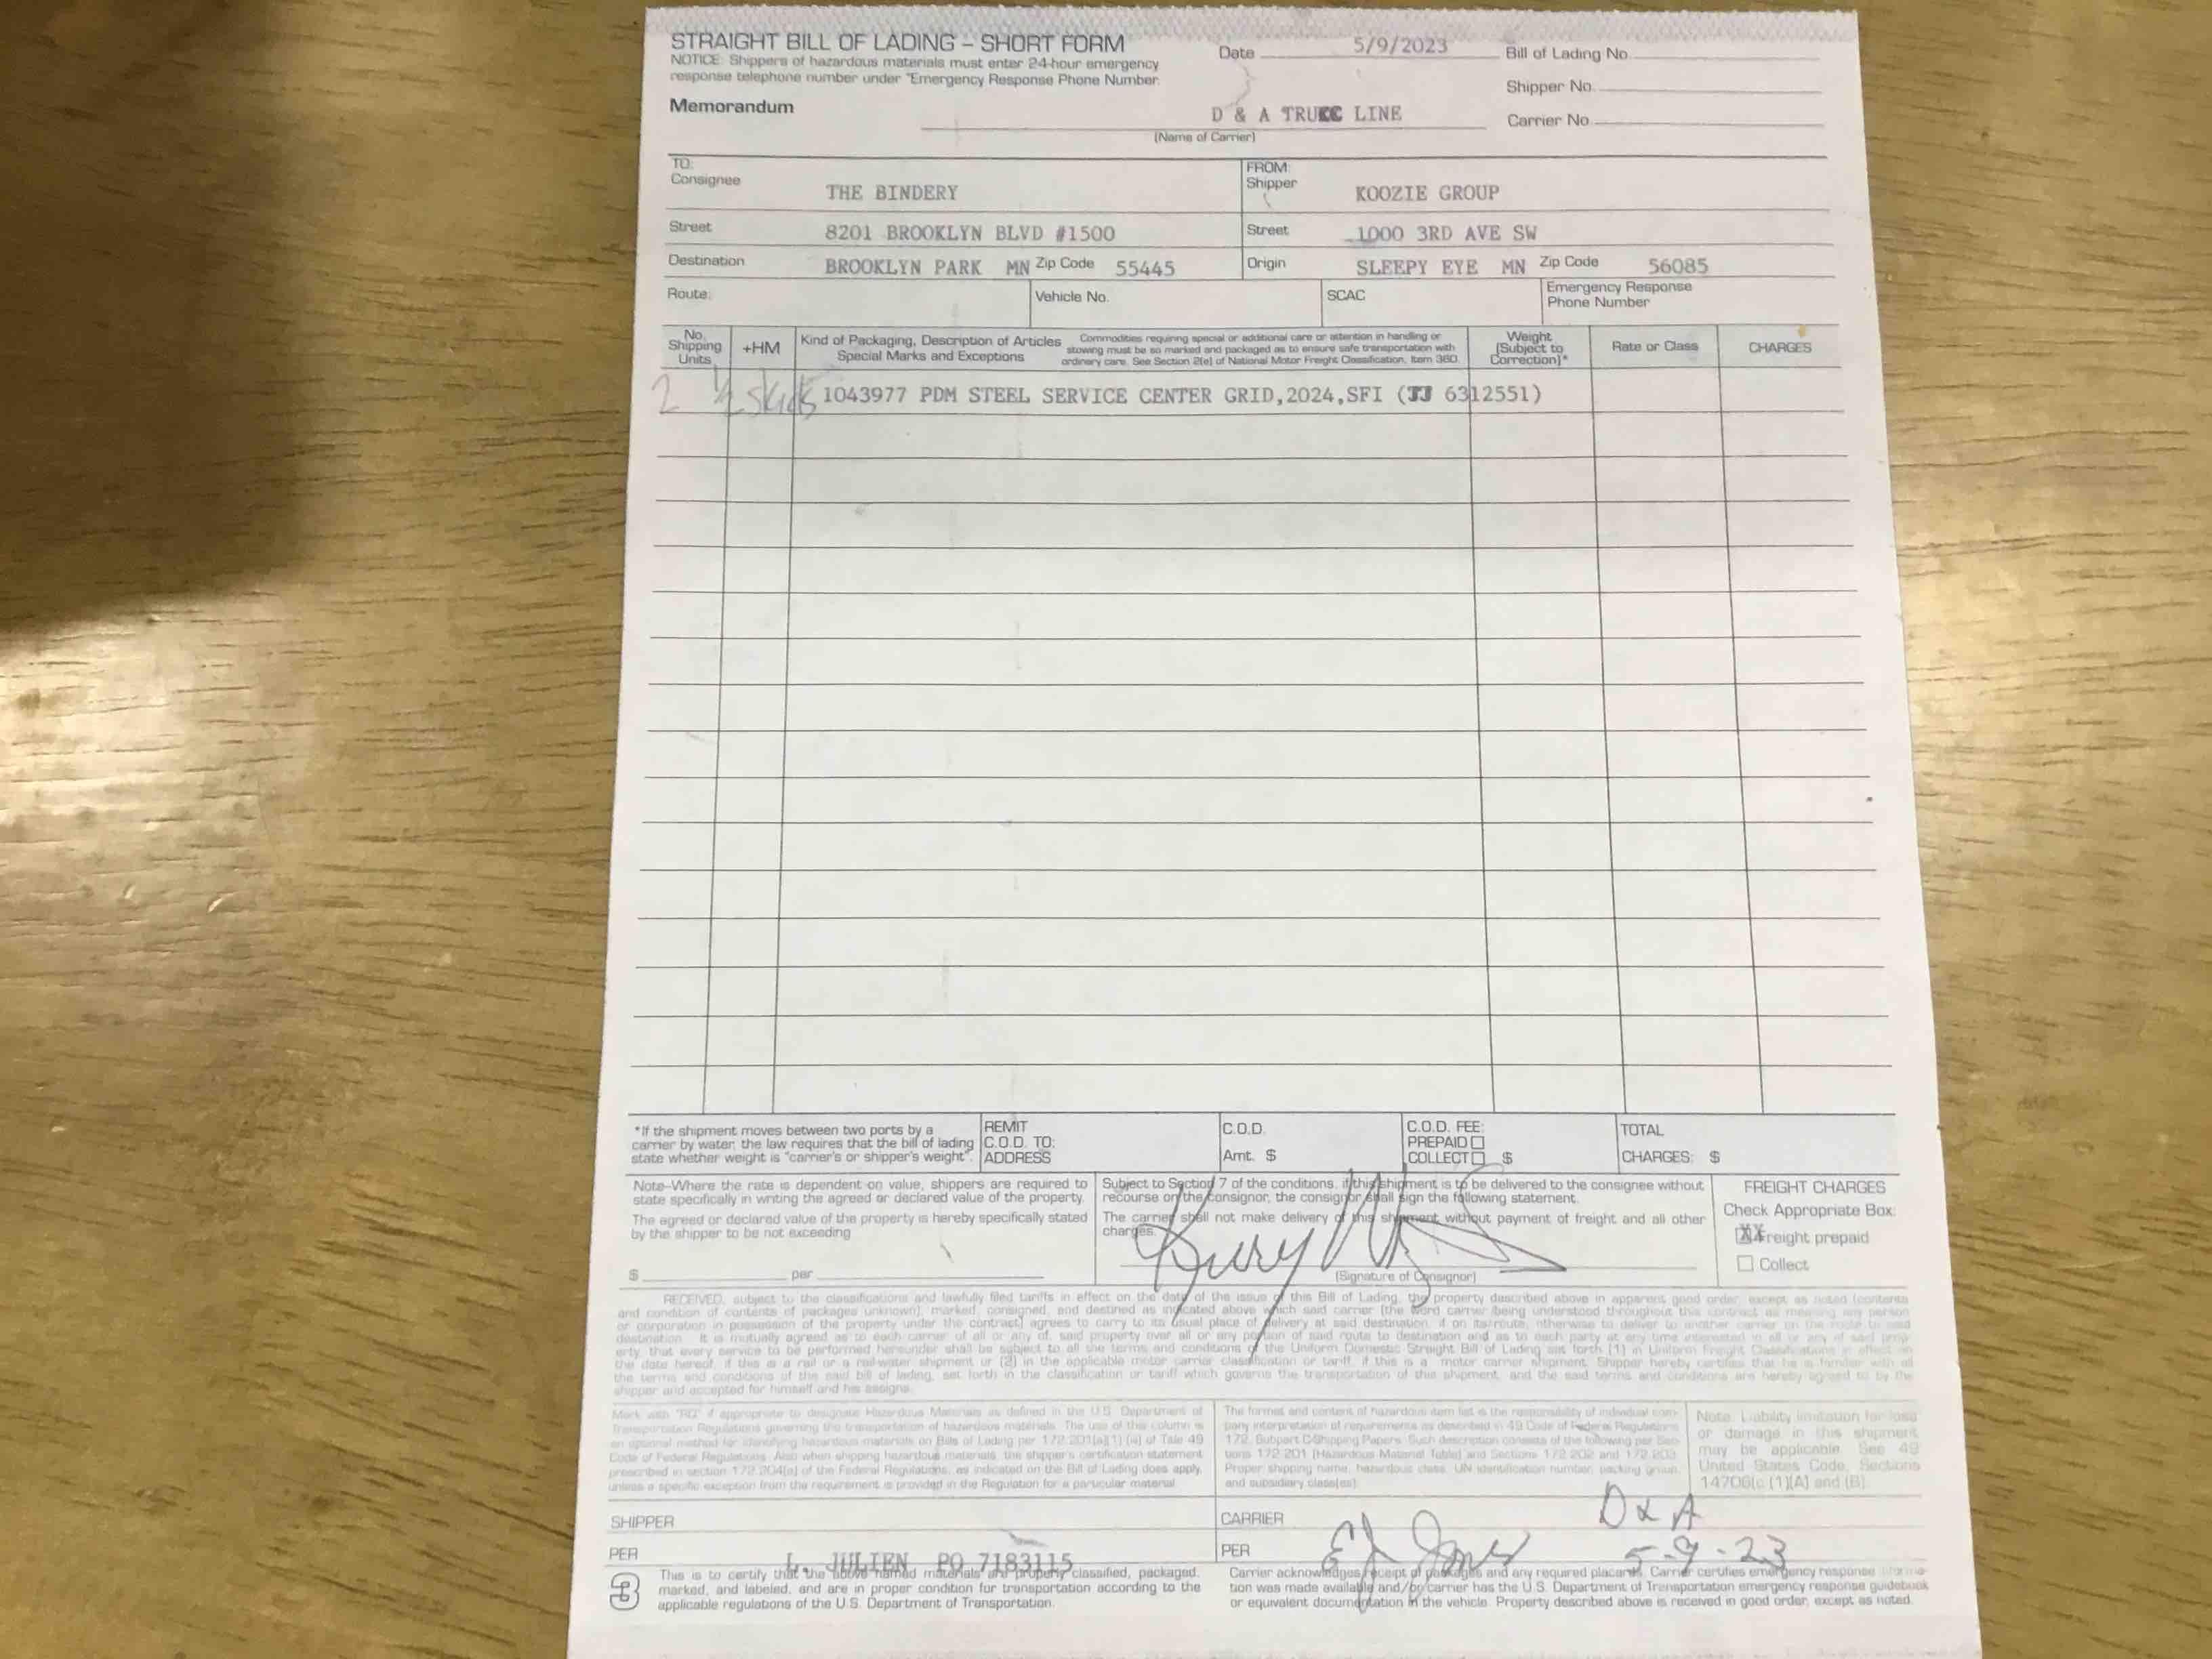 STRAIGHT BILL OF LADING – SHORT FORM
NOTICE: Shippers of hazardous materials must enter 24-hour emergency
response telephone number under "Emergency Response Phone Number.
Date 5/9/2023
Bill of Lading No.
Shipper No.
Carrier No.
Memorandum
D & A TRUCK LINE
(Name of Carrier)
TO:
Consignee THE BINDERY
FROM:
Shipper KOOZIE GROUP
Street 8201 BROOKLYN BLVD #1500
Street 1000 3RD AVE SW
Destination BROOKLYN PARK MN Zip Code 55445
Origin SLEEPY EYE MN Zip Code 56085
Route:
Vehicle No.
SCAC
Emergency Response
Phone Number
No.
Shipping
Units
+HM
Kind of Packaging, Description of Articles
Special Marks and Exceptions
Commodities requiring special or additional care or attention in handling or
stowing must be so marked and packaged as to ensure safe transportation with
ordinary care. See Section 2(e) of National Motor Freight Classification, Item 360.
Weight
(Subject to
Correction)*
Rate or Class
CHARGES
2 ½ Skids 1043977 PDM STEEL SERVICE CENTER GRID,2024,SFI (JJ 6312551)
*If the shipment moves between two ports by a
carrier by water, the law requires that the bill of lading
state whether weight is "carrier's or shipper's weight".
REMIT
C.O.D. TO:
ADDRESS
C.O.D.
Amt. $
C.O.D. FEE:
PREPAID
COLLECT $
TOTAL
CHARGES: $
Note–Where the rate is dependent on value, shippers are required to
state specifically in writing the agreed or declared value of the property.
The agreed or declared value of the property is hereby specifically stated
by the shipper to be not exceeding
$ per
Subject to Section 7 of the conditions, if this shipment is to be delivered to the consignee without
recourse on the consignor, the consignor shall sign the following statement.
The carrier shall not make delivery of this shipment without payment of freight and all other
charges.
(Signature of Consignor)
FREIGHT CHARGES
Check Appropriate Box:
XX Freight prepaid
Collect
RECEIVED, subject to the classifications and lawfully filed tariffs in effect on the date of the issue of this Bill of Lading, the property described above in apparent good order, except as noted (contents
and condition of contents of packages unknown), marked, consigned, and destined as indicated above which said carrier (the word carrier being understood throughout this contract as meaning any person
or corporation in possession of the property under the contract) agrees to carry to its usual place of delivery at said destination, if on its route, otherwise to deliver to another carrier on the route to said
destination. It is mutually agreed as to each carrier of all or any of, said property over all or any portion of said route to destination and as to each party at any time interested in all or any of said prop-
erty, that every service to be performed hereunder shall be subject to all the terms and conditions of the Uniform Domestic Straight Bill of Lading set forth (1) in Uniform Freight Classifications in effect on
the date hereof, if this is a rail or a rail-water shipment or (2) in the applicable motor carrier classification or tariff, if this is a motor carrier shipment. Shipper hereby certifies that he is familiar with all
the terms and conditions of the said bill of lading, set forth in the classification or tariff which governs the transportation of this shipment, and the said terms and conditions are hereby agreed to by the
shipper and accepted for himself and his assigns.
Mark with "RQ" if appropriate to designate Hazardous Materials as defined in the U.S. Department of
Transportation Regulations governing the transportation of hazardous materials. The use of this column is
an optional method for identifying hazardous materials on Bills of Lading per 172.201(a)(1) (iii) of Title 49
Code of Federal Regulations. Also when shipping hazardous materials, the shipper's certification statement
prescribed in section 172.204(a) of the Federal Regulations, as indicated on the Bill of Lading does apply,
unless a specific exception from the requirement is provided in the Regulation for a particular material.
The format and content of hazardous item list is the responsibility of individual com-
pany interpretation of requirements as described in 49 Code of Federal Regulations
172, Subpart C-Shipping Papers. Such description consists of the following per Sec-
tions 172.201 (Hazardous Material Table) and Sections 172.202 and 172.203:
Proper shipping name, hazardous class, UN identification number, packing group,
and subsidiary class(es).
Note: Liability limitation for loss
or damage in this shipment
may be applicable. See 49
United States Code, Sections
14706(c (1)(A) and (B).
SHIPPER
CARRIER D & A
PER L. JULIEN PO 7183115
PER EJ Jones 5-9-23
3
This is to certify that the above named materials are properly classified, packaged,
marked, and labeled, and are in proper condition for transportation according to the
applicable regulations of the U.S. Department of Transportation.
Carrier acknowledges receipt of packages and any required placards. Carrier certifies emergency response informa-
tion was made available and/or carrier has the U.S. Department of Transportation emergency response guidebook
or equivalent documentation in the vehicle. Property described above is received in good order, except as noted.